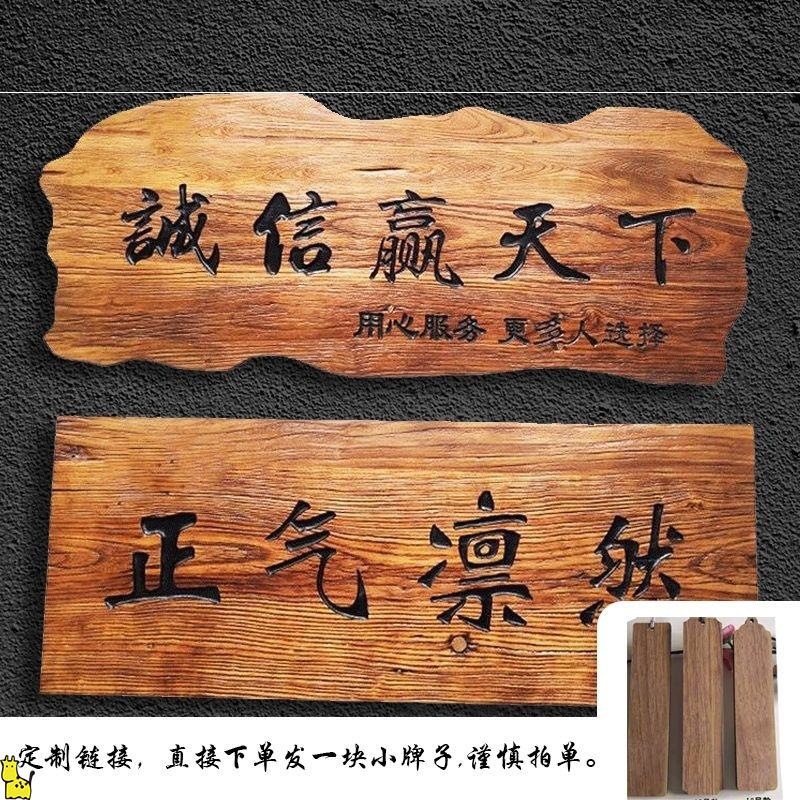 誠信赢天下
用心服务 更多人选择
正气凛然
定制链接，直接下单发一块小牌子,谨慎拍单。